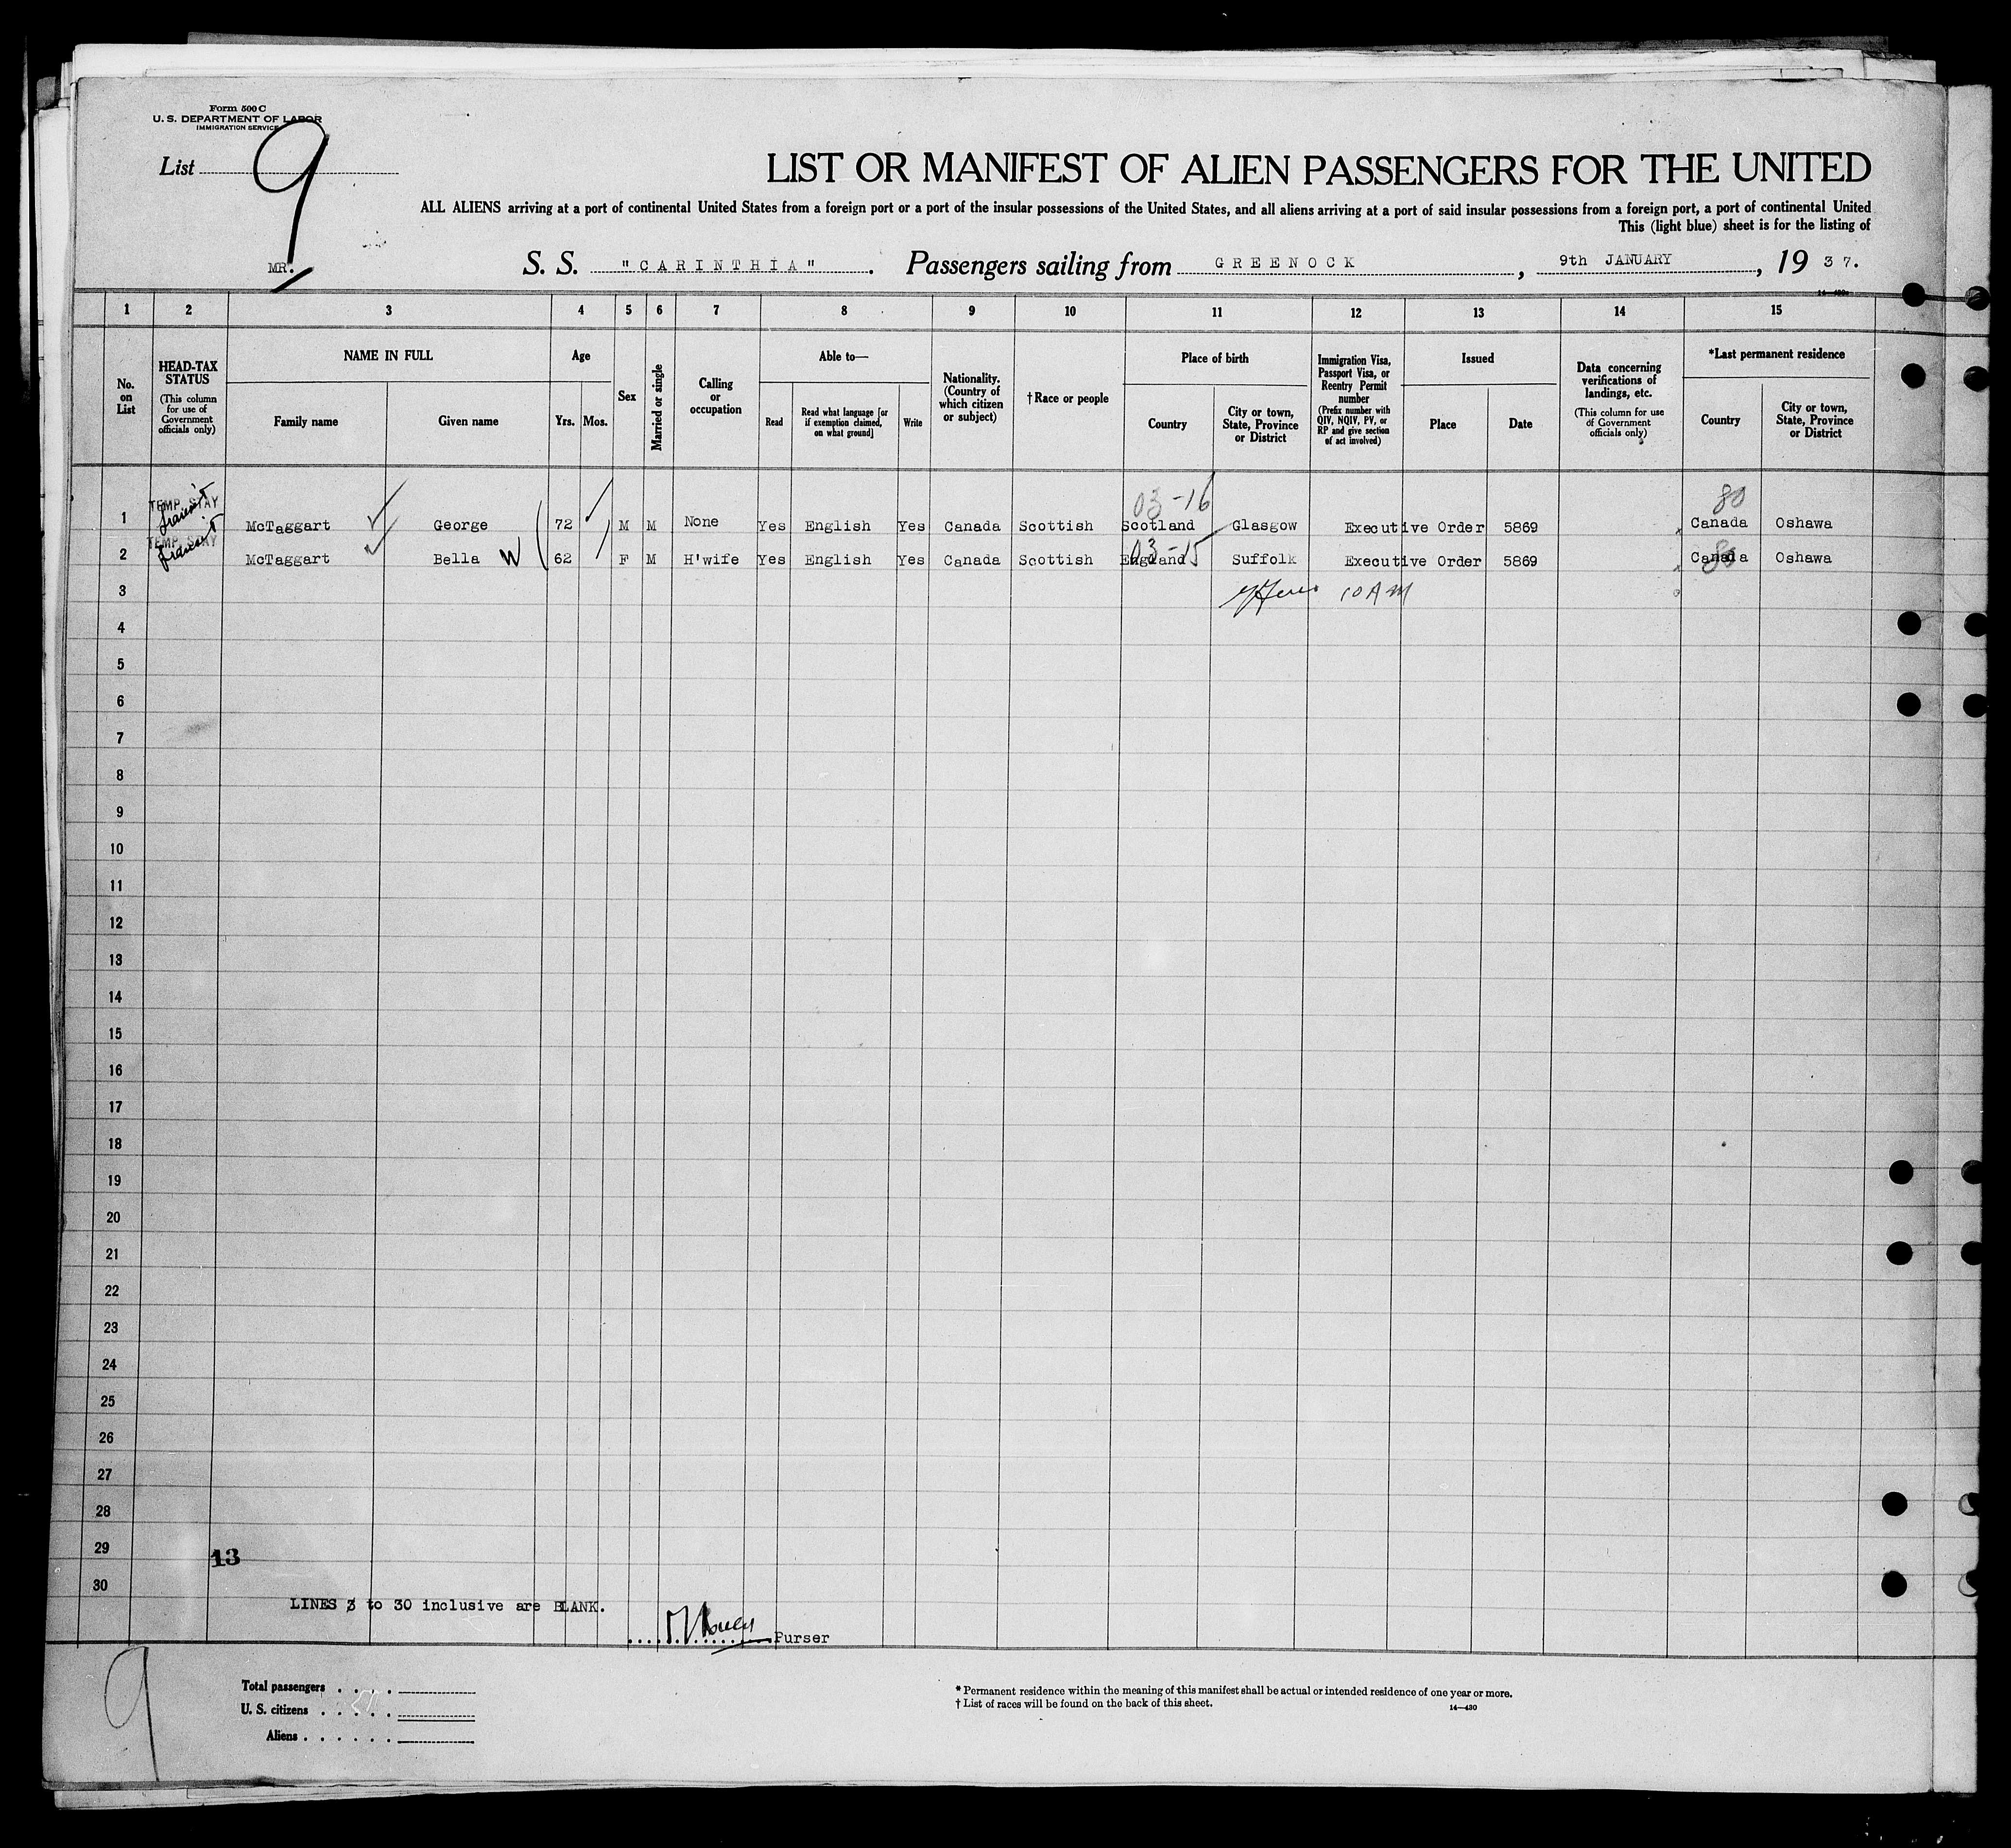 Form 500 C
U. S. DEPARTMENT OF LABOR
IMMIGRATION SERVICE
List 9
LIST OR MANIFEST OF ALIEN PASSENGERS FOR THE UNITED
ALL ALIENS arriving at a port of continental United States from a foreign port or a port of the insular possessions of the United States, and all aliens arriving at a port of said insular possessions from a foreign port, a port of continental United
This (light blue) sheet is for the listing of
MR.
S. S. "CARINTHIA". Passengers sailing from GREENOCK, 9th JANUARY, 1937.
14—430
1 2 3 4 5 6 7 8 9 10 11 12 13 14 15
No. on List
HEAD-TAX STATUS (This column for use of Government officials only)
NAME IN FULL
Family name
Given name
Age
Yrs. Mos.
Sex
Married or single
Calling or occupation
Able to—
Read
Read what language [or if exemption claimed, on what ground]
Write
Nationality. (Country of which citizen or subject)
†Race or people
Place of birth
Country
City or town, State, Province or District
Immigration Visa, Passport Visa, or Reentry Permit number (Prefix number with QIV, NQIV, PV, or RP and give section of act involved)
Issued
Place
Date
Data concerning verifications of landings, etc. (This column for use of Government officials only)
*Last permanent residence
Country
City or town, State, Province or District
03-16 80
1 TEMP. STAY Transit McTaggart George 72 M M None Yes English Yes Canada Scottish Scotland Glasgow Executive Order 5869 Canada Oshawa
03-15 80
2 TEMP. STAY Transit McTaggart Bella W 62 F M H'wife Yes English Yes Canada Scottish England Suffolk Executive Order 5869 Canada Oshawa
3 10 AM
4
5
6
7
8
9
10
11
12
13
14
15
16
17
18
19
20
21
22
23
24
25
26
27
28
29
13
30
LINES 3 to 30 inclusive are BLANK.
Purser
9
Total passengers
U. S. citizens
Aliens
* Permanent residence within the meaning of this manifest shall be actual or intended residence of one year or more.
† List of races will be found on the back of this sheet.
14—430